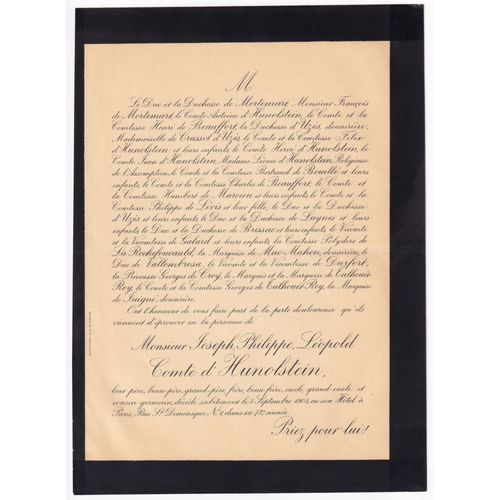 M
Le Duc et la Duchesse de Mortemart, Monsieur François
de Mortemart, le Comte Antoine d'Hunolstein, le Comte et la
Comtesse Henri de Beauffort, la Duchesse d'Uzès, douairière,
Mademoiselle de Crussol d'Uzès, le Comte et la Comtesse Félix
d'Hunolstein et leurs enfants, le Comte Hervé d'Hunolstein, le
Comte Jean d'Hunolstein, Madame Léonie d'Hunolstein Religieuse
de l'Assomption, le Comte et la Comtesse Bertrand de Bouillé et leurs
enfants, le Comte et la Comtesse Charles de Beauffort, le Comte et
la Comtesse Humbert de Maroeu et leurs enfants, le Comte et la
Comtesse Philippe de Lévis et leur fille, le Duc et la Duchesse
d'Uzès et leurs enfants, le Duc et la Duchesse de Luynes et leurs
enfants, le Duc et la Duchesse de Brissac et leurs enfants, le Vicomte
et la Vicomtesse de Galard et leurs enfants, la Comtesse Polydore de
La Rochefoucauld, la Marquise de Mac-Mahon, douairière, le
Duc de Vallombrosa, le Vicomte et la Vicomtesse de Durfort,
la Princesse Georges de Croÿ, le Marquis et la Marquise de Talhouët
Roy, le Comte et la Comtesse Georges de Talhouët Roy, la Marquise
de Juigné, douairière,
Ont l'honneur de vous faire part de la perte douloureuse qu'ils
viennent d'éprouver en la personne de
Monsieur Joseph, Philippe, Léopold
Comte d'Hunolstein,
leur père, beau-père, grand-père, frère, beau-frère, oncle, grand-oncle et
cousin-germain, décédé subitement le 3 Septembre en son Hôtel à
Paris, Rue St Dominique, No 1, dans sa 73e année.
Priez pour lui!